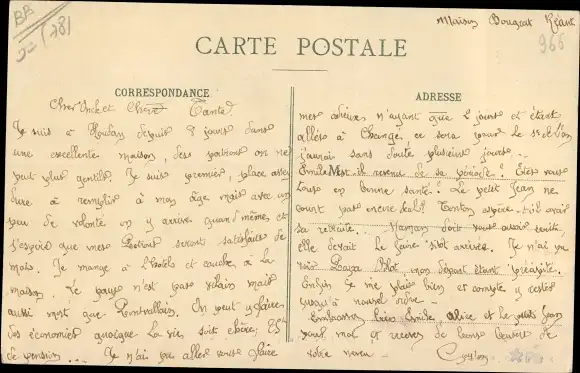 BB
Maison Bougrat
966
CARTE POSTALE
CORRESPONDANCE
ADRESSE
Cher Oncle et Chère Tante
Je suis à Houdan depuis 8 jours dans
une excellente maison, des patrons on ne
peut plus gentils. Je suis premier, place assez
dure à remplir à mon âge mais avec un
peu de volonté on y arrive quand même et
j'espère que mes Patrons seront satisfaits de
moi. Je mange à l'hôtel et couche à la
maison. Le pays n'est pas vilain mais
aussi mort que Pontvallain. On peut y faire
des économies quoique la vie soit chère;
de pension... Je n'ai pu aller vous faire
mes adieux n'ayant que 2 jours et étant
allés à Changé ce sera pour le 1er de l'an
j'aurai sans doute plusieurs jours.
Emile est-il revenu de sa période? Etes vous
tous en bonne santé? Le petit Jean ne
court pas encore seul? Tonton espère-t-il avoir
sa retraite. Maman doit vous avoir écrit,
elle devait le faire sitôt arrivée. Je n'ai pu
voir mon départ étant précipité.
Enfin je me plais bien et compte y rester
jusqu'à nouvel ordre -
Embrassez bien Emile, Alice et le petit Jean
pour moi et recevez de bons baisers de
votre neveu -